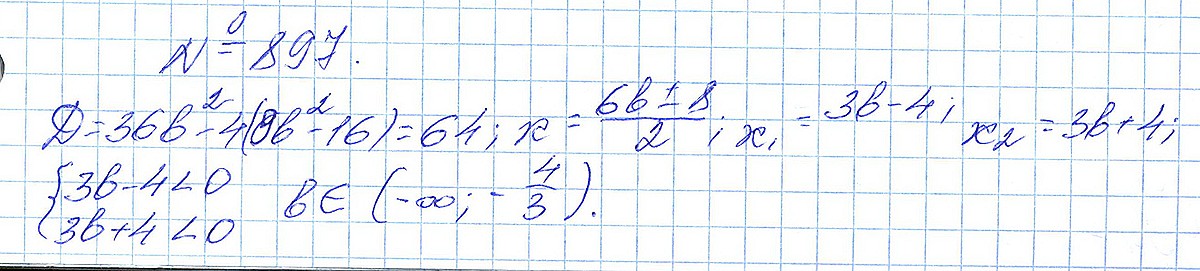 № 897.
Д = 36b² - 4(9b² - 16) = 64; x = (6b ± 8)/2; x₁ = 3b - 4; x₂ = 3b + 4;
{3b - 4 < 0 b ∈ (-∞; -4/3).
3b + 4 < 0